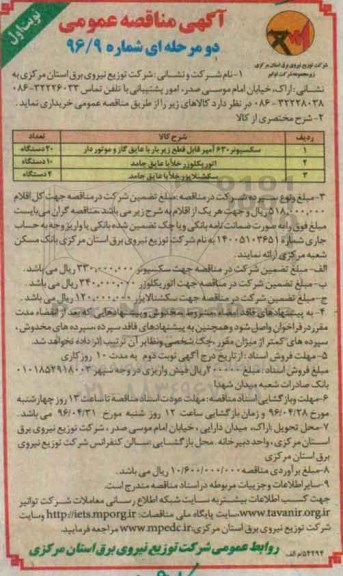 نوبت اول
آگهی مناقصه عمومی
دو مرحله ای شماره ۹۶/۹
شرکت توزیع نیروی برق استان مرکزی
۱-نام شرکت و نشانی: شرکت توزیع نیروی برق استان مرکزی به
نشانی: اراک، خیابان امام موسی صدر، امور پشتیبانی با تلفن تماس ۳۲۲۲۶۰۳۳-۰۸۶
۳۲۲۲۸۰۳۸-۰۸۶ در نظر دارد کالاهای زیر را از طریق مناقصه عمومی خریداری نماید.
۲-شرح مختصری از کالا
ردیف شرح کالا تعداد
۱ سکسیونر ۶۳۰ آمپر قابل قطع زیر بار با عایق گاز و موتور دار ۲۰ دستگاه
۲ اتوریکلوزر خلأ با عایق جامد ۱۰ دستگاه
۳ سکشنالایزر خلأ با عایق جامد ۴ دستگاه
۳-مبلغ و نوع سپرده شرکت در مناقصه: مبلغ تضمین شرکت در مناقصه جهت کل اقلام
۵۱۸٫۰۰۰٫۰۰۰ ریال و جهت هر یک از اقلام به شرح زیر می باشد. مناقصه گران می بایست
مبلغ فوق را به صورت ضمانت نامه بانکی و یا چک تضمین شده بانکی یا واریز وجه به حساب
جاری شماره ۱۴۰۰۵۱۰۳۶۵۱ به نام شرکت توزیع نیروی برق استان مرکزی بانک مسکن
شعبه مرکزی ارائه نمایند.
الف-مبلغ تضمین شرکت در مناقصه جهت سکسیونر ۳۳۰٫۰۰۰٫۰۰۰ ریال می باشد.
ب-مبلغ تضمین شرکت در مناقصه جهت اتوریکلوزر ۳۴۰٫۰۰۰٫۰۰۰ ریال می باشد.
ج-مبلغ تضمین شرکت در مناقصه جهت سکشنالایزر ۱۲۰٫۰۰۰٫۰۰۰ ریال می باشد.
۴-به پیشنهادهای فاقد امضا، مشروط، مخدوش و پیشنهادهایی که بعد از انقضاء مدت
مقرر در فراخوان واصل شود و همچنین به پیشنهادهای فاقد سپرده، سپرده های مخدوش،
سپرده های کمتر از میزان مقرر، چک شخصی و نظایر آن ترتیب اثر داده نخواهد شد.
۵-مهلت فروش اسناد: از تاریخ درج آگهی نوبت دوم به مدت ۱۰ روز کاری
مبلغ فروش اسناد: مبلغ ریال فیش واریزی در وجه سپهر ۰۱۰۱۸۵۲۹۱۸۰۰۳
بانک صادرات شعبه میدان شهدا
۶-مهلت و بازگشایی اسناد مناقصه: مهلت عودت اسناد مناقصه تا ساعت ۱۳ روز چهارشنبه
مورخ ۹۶/۰۴/۲۸ و زمان بازگشایی ساعت ۱۲ روز شنبه مورخ ۹۶/۰۴/۳۱ می باشد.
۷-محل تحویل: اراک، میدان دارایی، خیابان امام موسی صدر، شرکت توزیع نیروی برق
استان مرکزی، واحد دبیرخانه. محل بازگشایی: سالن کنفرانس شرکت توزیع نیروی
برق استان مرکزی
۸-مبلغ برآوردی مناقصه ۱۰/۶۰۰/۰۰۰/۰۰۰ ریال می باشد.
۹-سایر اطلاعات و جزییات مربوطه در اسناد مناقصه مندرج است.
جهت کسب اطلاعات بیشتر به سایت شبکه اطلاع رسانی معاملات شرکت توانیر
www.tavanir.org.ir، سایت پایگاه ملی مناقصات: http://iets.mporg.ir و سایت
شرکت توزیع نیروی برق استان مرکزی: www.mpedc.ir مراجعه فرمایید.
۵۴۲۹۴/م الف
روابط عمومی شرکت توزیع نیروی برق استان مرکزی